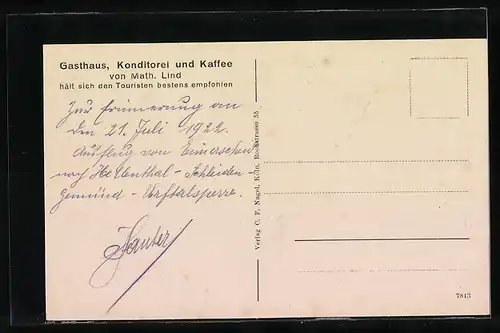 Gasthaus, Konditorei und Kaffee
von Math. Lind
hält sich den Touristen bestens empfohlen
Zur Erinnerung an
den 21. Juli 1922.
Ausflug von
nach Hellenthal - Schleiden -
Gemünd - Urftalsperre.
Verlag C. F. Nagel, Köln, Rochstrasse 55
7813